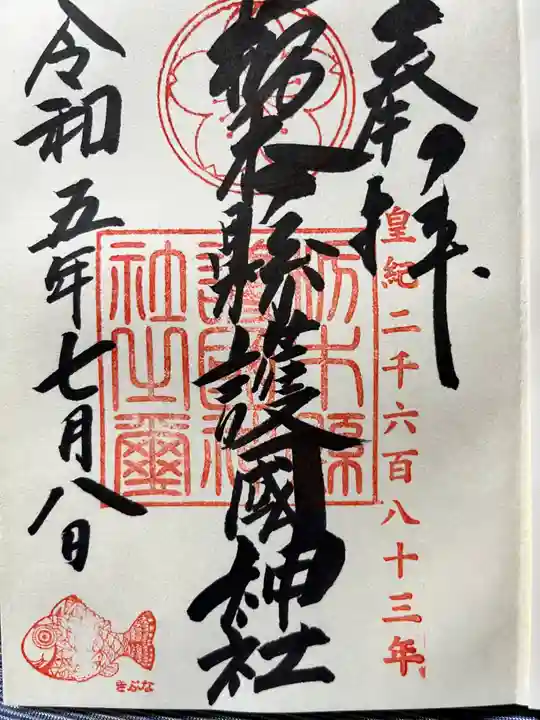 奉拝
皇紀二千六百八十三年
栃木縣護國神社
栃木縣
護国神
社之璽
令和五年七月八日
きぶな